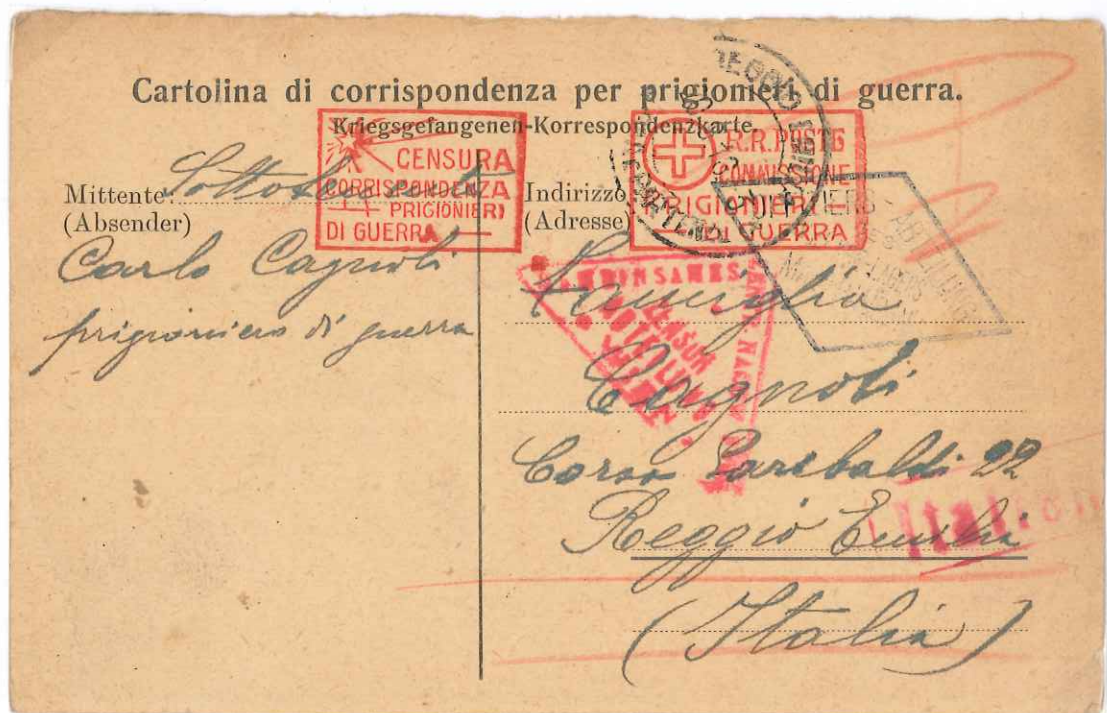 Cartolina di corrispondenza per prigionieri di guerra.
Kriegsgefangenen-Korrespondenzkarte.
CENSURA
CORRISPONDENZA
PRIGIONIERI
DI GUERRA
R.R. POSTE
COMMISSIONE
PRIGIONIERI
DI GUERRA
Mittente:
(Absender)
Carlo Cagnoli
prigioniero di guerra
Indirizzo
(Adresse)
Famiglia
Cagnoli
Corso Garibaldi 22
Reggio Emilia
(Italia)
REGGIO
ZENSUR
ABTEILUNG
Ital